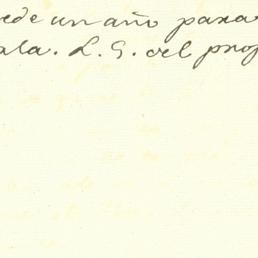 ede un año para
ala. L. G. del prop